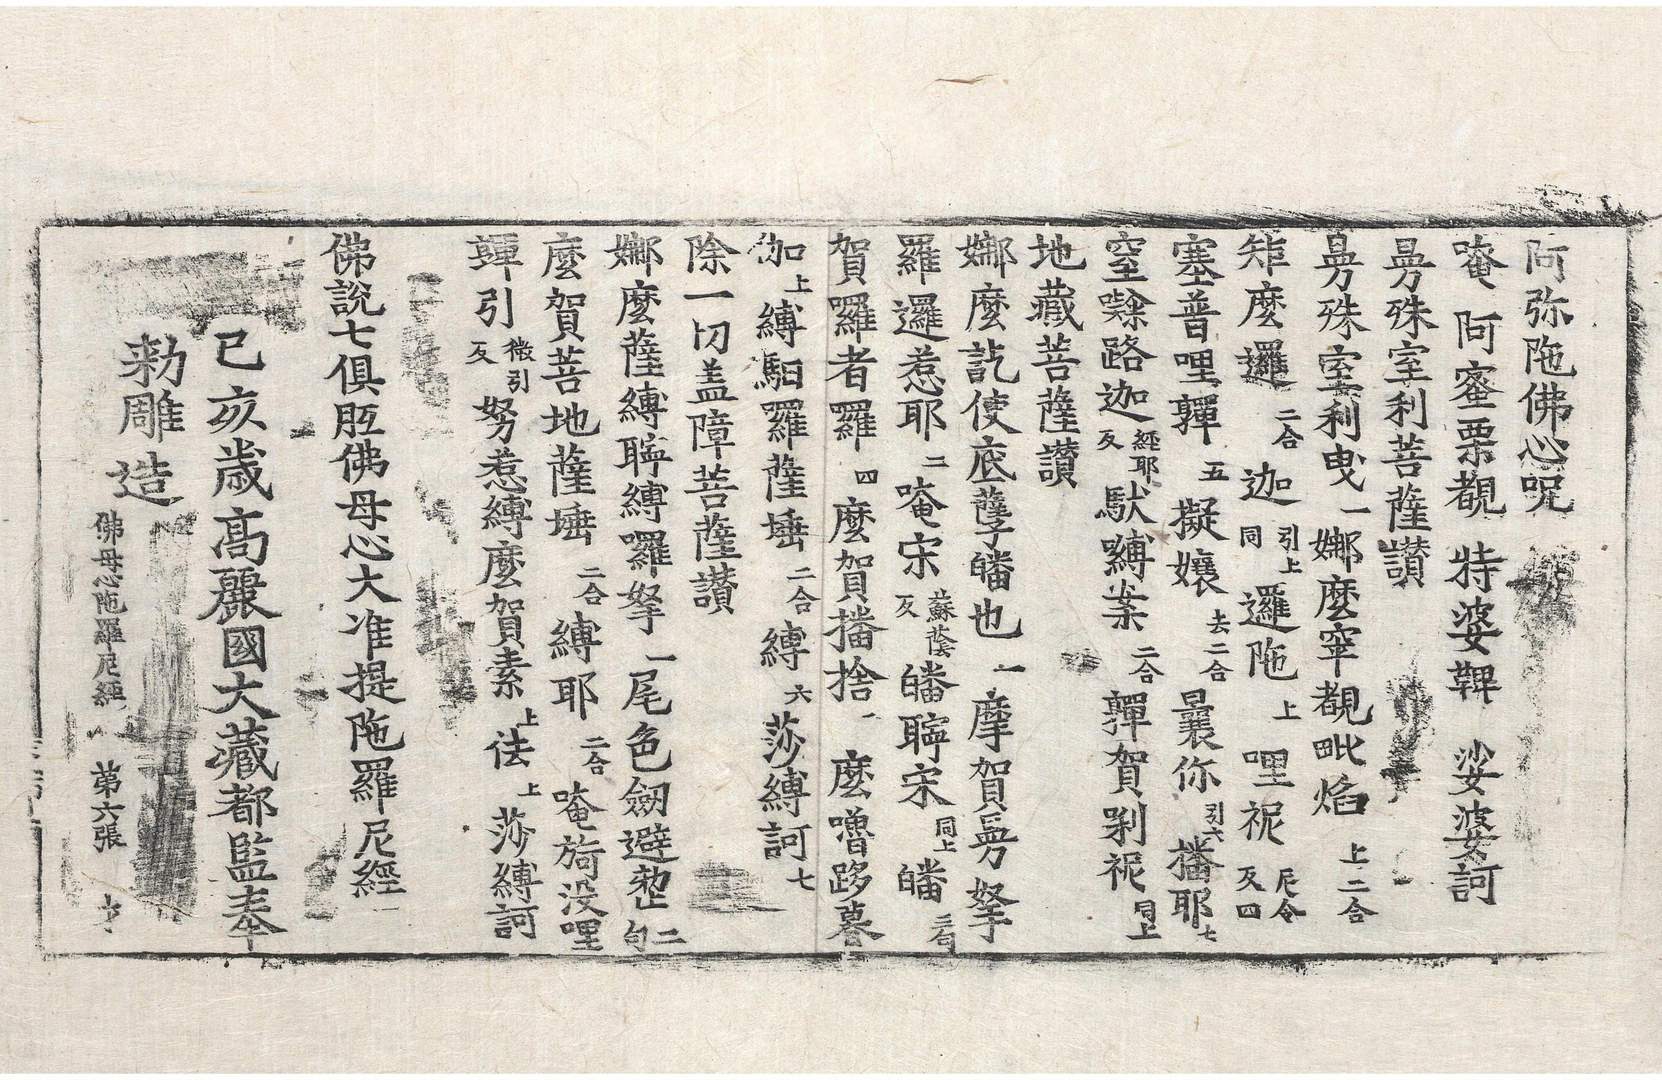 阿弥陁佛心呪
唵 阿蜜栗覩 特婆鞞 娑婆訶
曼殊室利菩薩讃
曼殊室利曳一娜麼窣覩毗焰上二合
矩麼邏二合迦引上同邏陁上哩抳尼令反四
塞普哩嚲五擬孃去二合曩你引六播耶七
窒 路迦經耶反馱嚩 二合嚲賀剃抳同上
地藏菩薩讃
娜麼訖使底孽皤也一摩賀曼拏
羅邏惹耶二唵宋蘇蔭反皤聹宋同上皤三句
賀囉者羅四麼賀播捨 麼嚕跢暮
伽上嚩馹羅薩埵二合嚩六莎嚩訶七
除一切盖障菩薩讃
娜麼薩嚩聹嚩囉拏一尾色劒避 二句
麼賀菩地薩埵二合嚩耶二合唵 没哩
嚲引 引反努惹嚩麼賀素上 上莎嚩訶
佛說七俱胝佛母心大准提陁羅尼經
己亥歲高麗國大藏都監奉
勑雕造
佛母心陁羅尼經 第六張